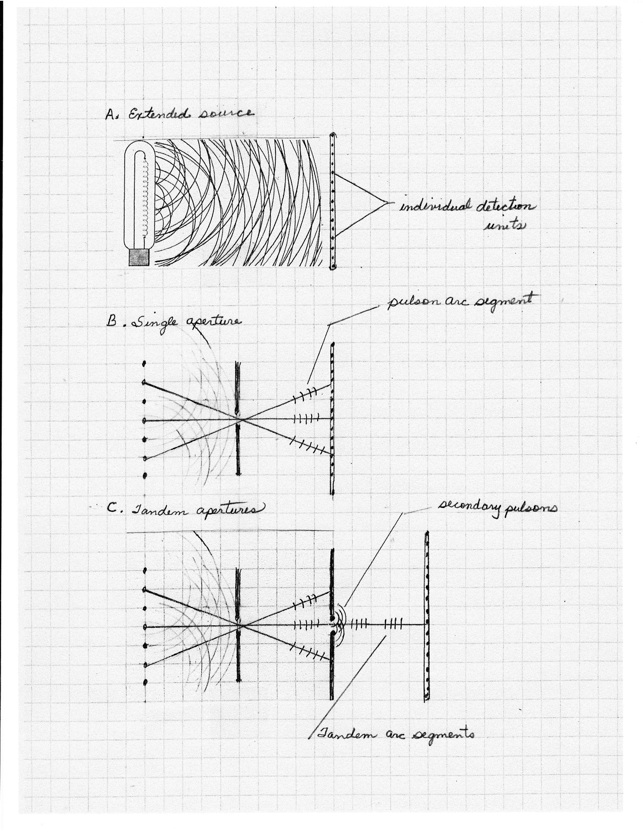 A. Extended source
individual detection
units
pulson arc segment
B. Single aperture
C. Tandem apertures
secondary pulsons
Tandem arc segments